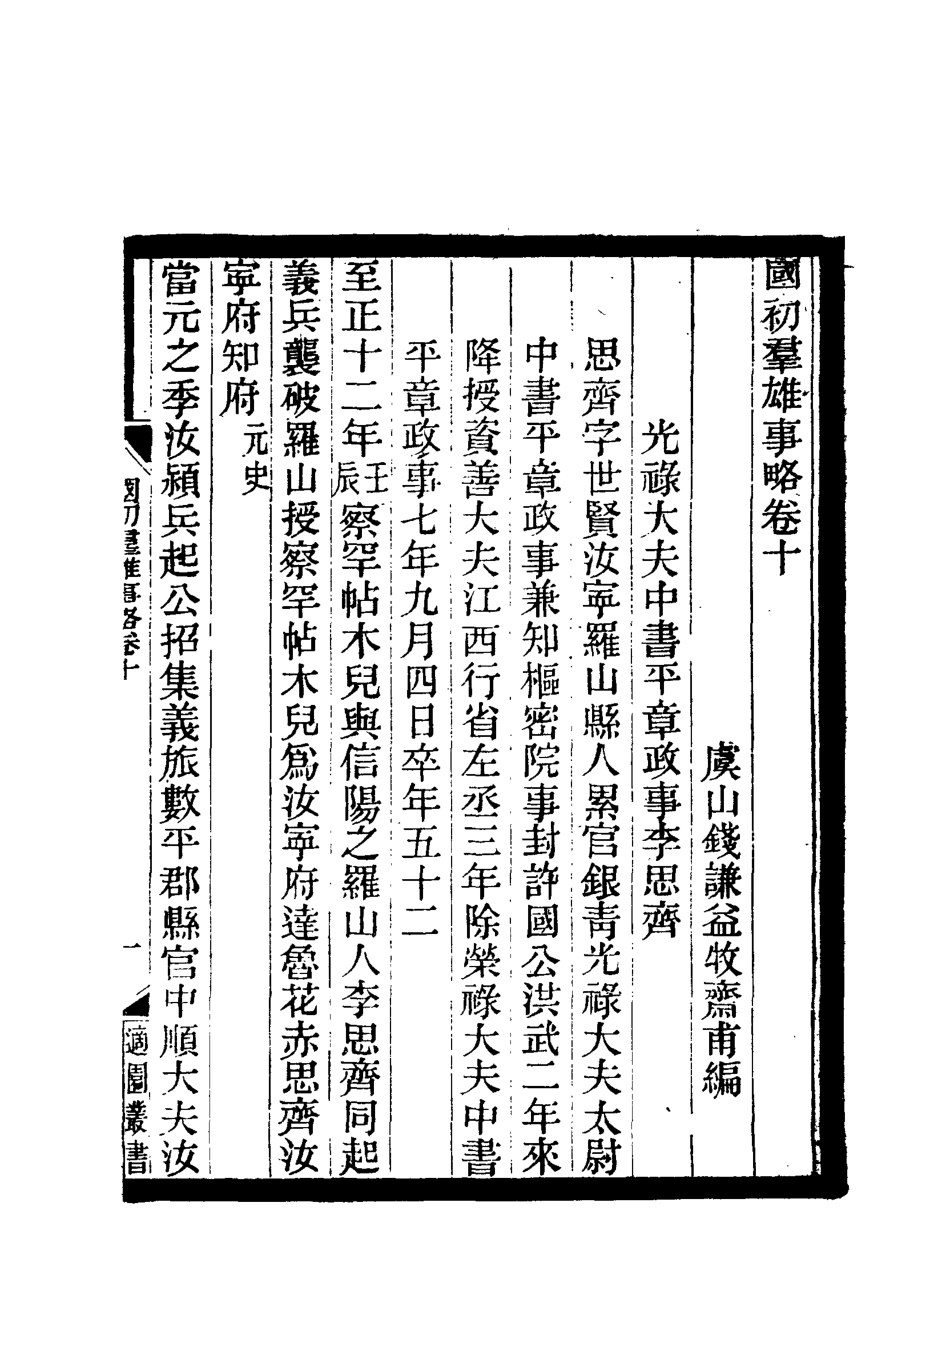 國初羣雄事略卷十
虞山錢謙益牧齋甫編
光祿大夫中書平章政事李思齊
思齊字世賢汝寧羅山縣人累官銀青光祿大夫太尉
中書平章政事兼知樞密院事封許國公洪武二年來
降授資善大夫江西行省左丞三年除榮祿大夫中書
平章政事七年九月四日卒年五十二
至正十二年壬辰察罕帖木兒與信陽之羅山人李思齊同起
義兵襲破羅山授察罕帖木兒爲汝寧府達魯花赤思齊汝
寧府知府元史
當元之季汝潁兵起公招集義旅數平郡縣官中順大夫汝
國初羣雄事略卷十
一
適園叢書